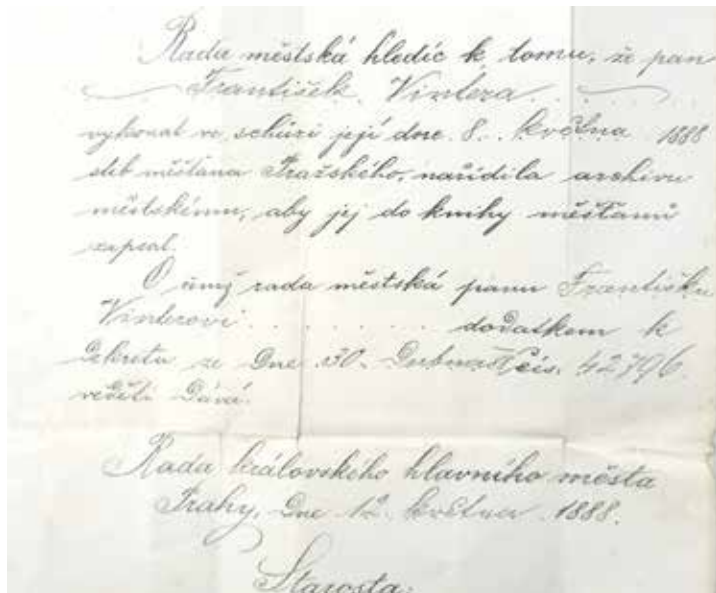 Rada městská hledíc k tomu, že pan
František Vintera
vykonal ve schůzi její dne 8. května 1888
slib měšťana Pražského, nařídila archivu
městskému, aby jej do knihy měšťanů
zapsal.
O čemž rada městská panu Františku
Vinterovi dodatkem k
dekretu ze dne 30. dubna čís. 42796
věděti dává.
Rada královského hlavního města
Prahy, dne 12. května 1888.
Starosta: